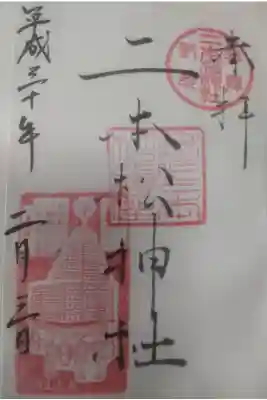 奉拝
二本松神社
平成三十年
二月三日